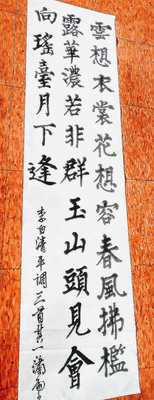 雲想衣裳花想容春風拂檻
露華濃若非群玉山頭見會
向瑤臺月下逢
李白清平调三首其一